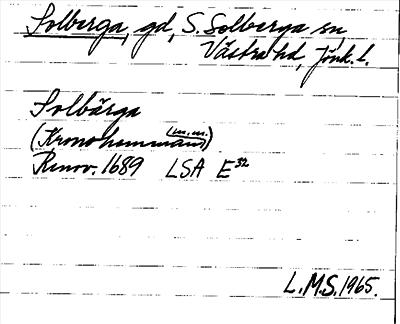 Solberga, gd, S. Solberga sn,
Västra hd, Jönk. l.
Solbärga
(Kronohemman) (m.m.)
Renov. 1689 LSA E³²
L.M.S. 1965.